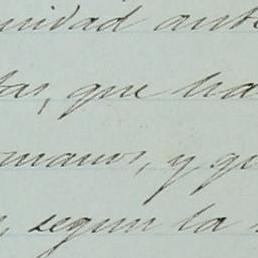 nidad ante
tas, que ha
omanos, y qu
, segun la